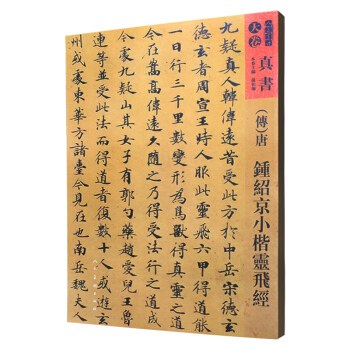 大卷
真書
(傳)唐
鍾紹京小楷靈飛經
九疑真人韓偉遠昔受此方於中岳宋德玄
德玄者周宣王時人服此靈飛六甲得道能
一日行三千里數變形為鳥獸得真靈之道
今在嵩高偉遠久隨之乃得受法行之道成
今處九疑山其女子有郭勺藥趙愛兒王魯
連等並受此法而得道者復數十人或遊玄
州或處東華方諸臺今見在也南岳魏夫人